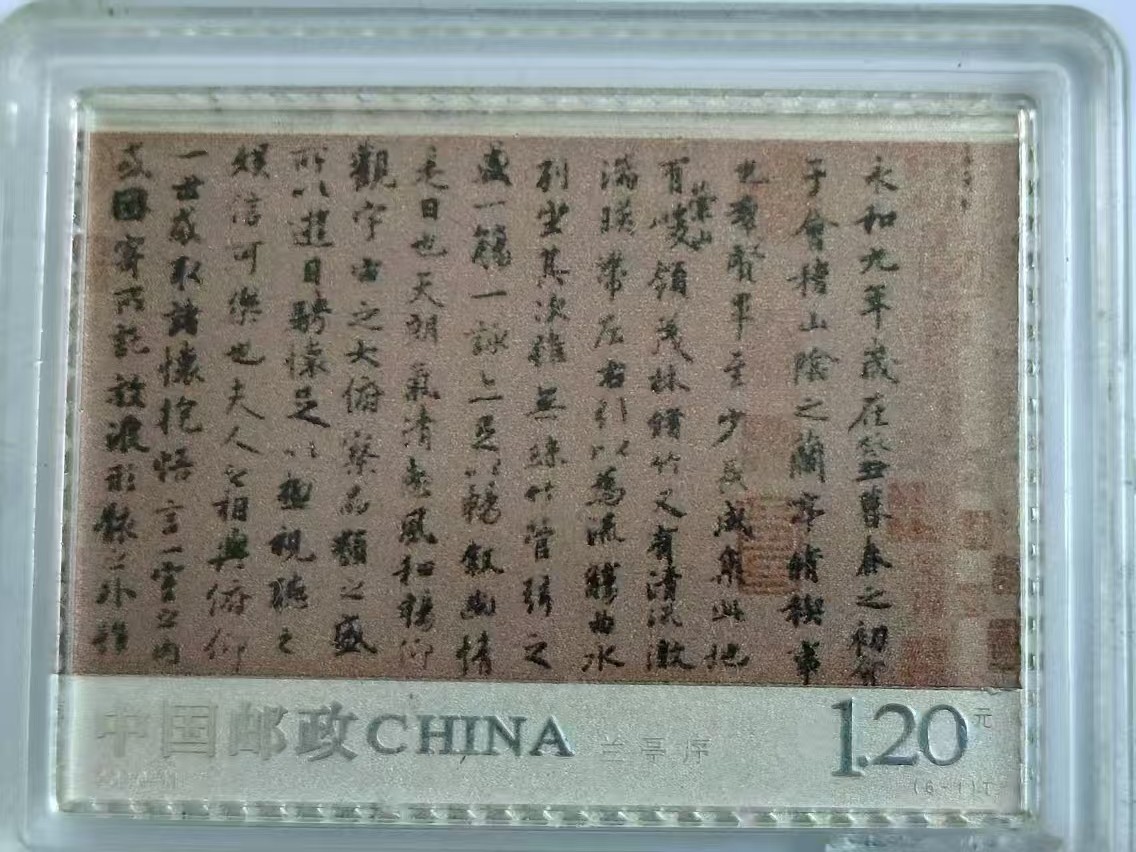 永和九年歲在癸丑暮春之初會
于會稽山陰之蘭亭脩稧事
也羣賢畢至少長咸集此地
有崇山峻領茂林脩竹又有清流激
湍暎帶左右引以為流觴曲水
列坐其次雖無絲竹管弦之
盛一觴一詠亦足以暢敘幽情
是日也天朗氣清惠風和暢仰
觀宇宙之大俯察品類之盛
所以遊目騁懷足以極視聽之
娛信可樂也夫人之相與俯仰
一世或取諸懷抱悟言一室之內
或因寄所託放浪形骸之外雖
中国邮政CHINA 兰亭序 1.20元
(6-1)T